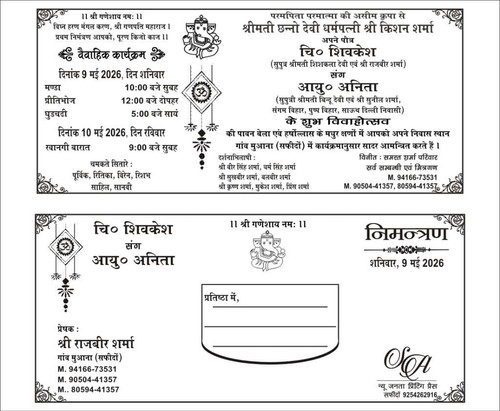 ।। श्री गणेशाय नमः ।।
विघ्न हरण मंगल करण, श्री गणपति महाराज ।
प्रथम निमंत्रण आपको, पूरण किजो काज ।।
वैवाहिक कार्यक्रम
दिनांक 9 मई 2026, दिन शनिवार
मण्डा 10:00 बजे सुबह
प्रीतिभोज 12:00 बजे दोपहर
घुडचढी 5:00 बजे सायं
दिनांक 10 मई 2026, दिन रविवार
रवानगी बारात 9:00 बजे सुबह
चमकते सितारे :
पूर्विक, रितिका, विरेन, रिशभ
साहिल, सानवी
परमपिता परमात्मा की असीम कृपा से
श्रीमती छन्नो देवी धर्मपत्नी श्री किशन शर्मा
अपने पौत्र
चि० शिवकेश
(सुपुत्र श्रीमती शिशकला देवी एवं श्री राजबीर शर्मा)
संग
आयु० अनिता
(सुपुत्री श्रीमती बिन्दू देवी एवं श्री सुनील शर्मा,
संगम विहार, पुष्प विहार, साऊथ दिल्ली निवासी)
के शुभ विवाहोत्सव
की पावन बेला एवं हर्षोल्लास के मधुर क्षणों में आपको अपने निवास स्थान
गांव मुआना (सफीदों) में कार्यक्रमानुसार सादर आमन्त्रित करते हैं ।
दर्शनाभिलाषी :
श्री वीर सिंह शर्मा, धर्म सिंह शर्मा
श्री सुखबीर शर्मा, बलवीर शर्मा
श्री कृष्ण शर्मा, मुकेश शर्मा, प्रिंस शर्मा
विनीत : समस्त शर्मा परिवार
सर्व सम्बन्धी एवं मित्रगण
M. 94166-73531
M. 90504-41357, 80594-41357
चि० शिवकेश
संग
आयु० अनिता
।। श्री गणेशाय नमः ।।
निमन्त्रण
शनिवार, 9 मई 2026
प्रतिष्ठा में,
प्रेषक :
श्री राजबीर शर्मा
गांव मुआना (सफीदों)
M. 94166-73531
M. 90504-41357
M.. 80594-41357
SA
न्यू जनता प्रिंटिंग प्रैस
सफीदों 9254262916